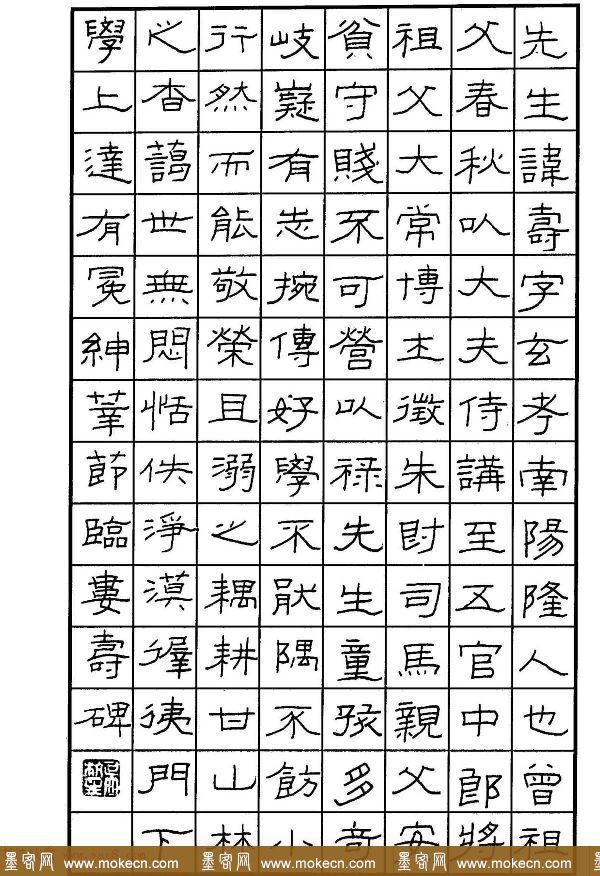 先生諱壽字玄考南陽隆人也曾祖
父春秋以大夫侍講至五官中郎將
祖父大常博士徵朱爵司馬親父安
貧守賤不可營以祿先生童孩多奇
岐嶷有志捥傳好學不猒隅不飭小
行然而能敬榮且溺之耦耕甘山林
之杳藹世無悶恬佚淨漠徲𢓡門下
學上達有冕紳莘節臨婁壽碑
墨客网 www.mokecn.com 墨客网 www.mokecn.com 墨客网 www.mokecn.com